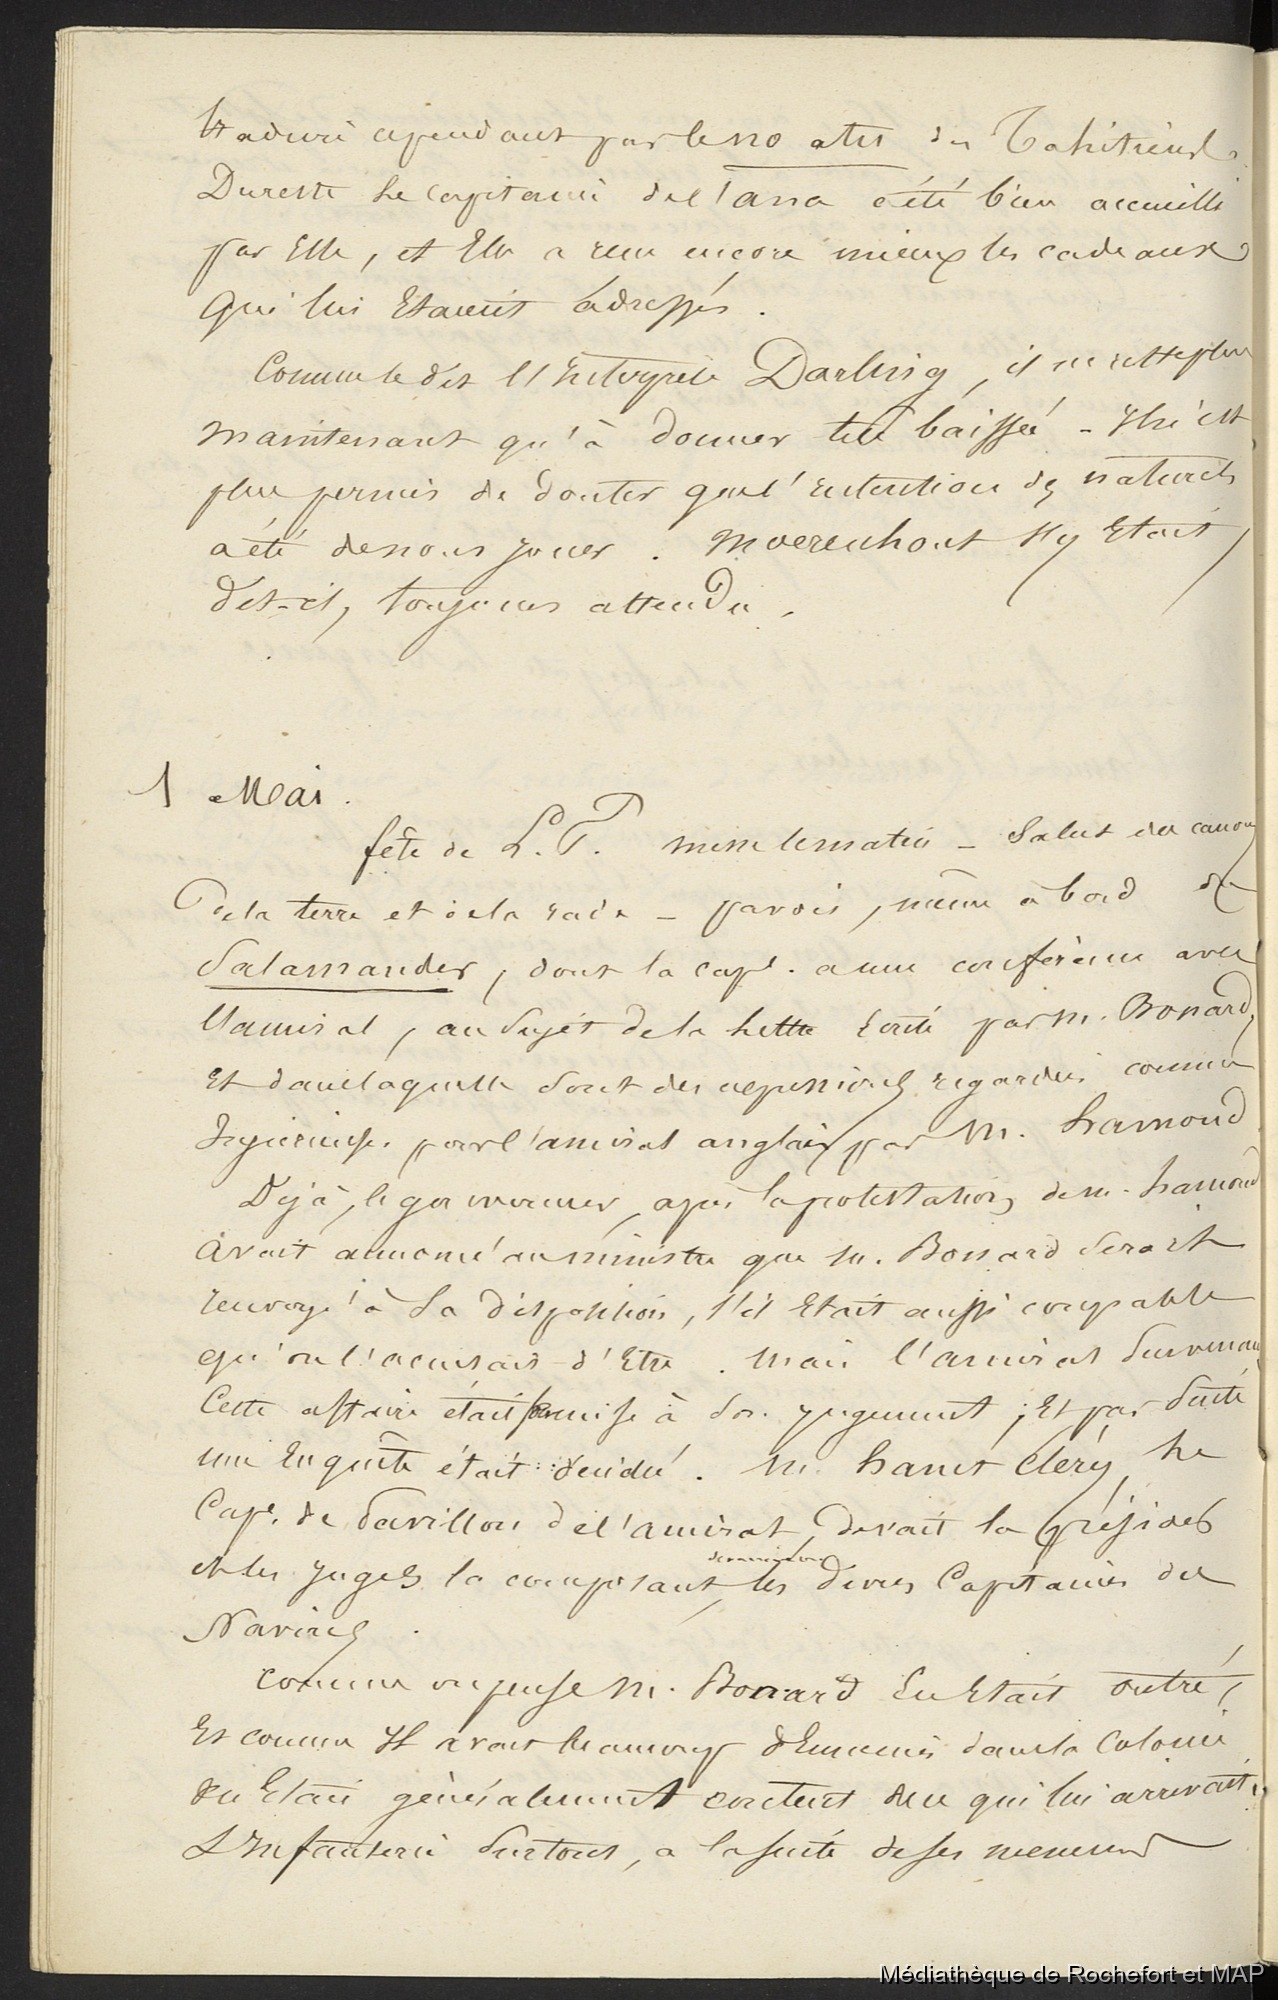 traduire cependant par le no atu des Tahitiens.
Du reste le capitaine de l'ana a été bien accueilli
par Elle, et Elle a reçu encore mieux les cadeaux
qui lui Etaient adressés.
Comme le dit l'Interprète Darling, il ne reste plus
maintenant qu'à donner tête baissée - Il n'est
plus permis de douter que l'intention des naturels
a été de nous jouer. Moerenhout s'y Etait,
dit-il, toujours attendu.
1 Mai.
fête de L. P. messe le matin - Salut du canon
de la terre et de la rade - pavois, même à bord du
Salamander, dont le cape. a une conférence avec
l'amiral, au sujet de la lettre écrite par M. Bonard,
Et dans laquelle sont des expressions regardées comme
Injurieuses pour l'amiral anglais par M. Hamond
Déjà, le gouverneur, après la protestation de M. Hamond
avait annoncé au ministre que M. Bonard serait
renvoyé à sa disposition, s'il Etait aussi coupable
qu'on l'accusait d'Etre. Mais l'amiral survenant
Cette affaire était remise à son jugement; Et par suite
une Enquête était décidée. M. Hanet Cléry, le
Cape. de Pavillon de l'amiral, devait la présider
et les juges la composant, les divers Capitaines des
Navires.
Comme on pense M. Bonard En Etait outré,
Et comme Il avait beaucoup d'Ennemis dans la Colonie
on Etait généralement content de ce qui lui arrivait.
L'Infanterie surtout, a la suite de ses